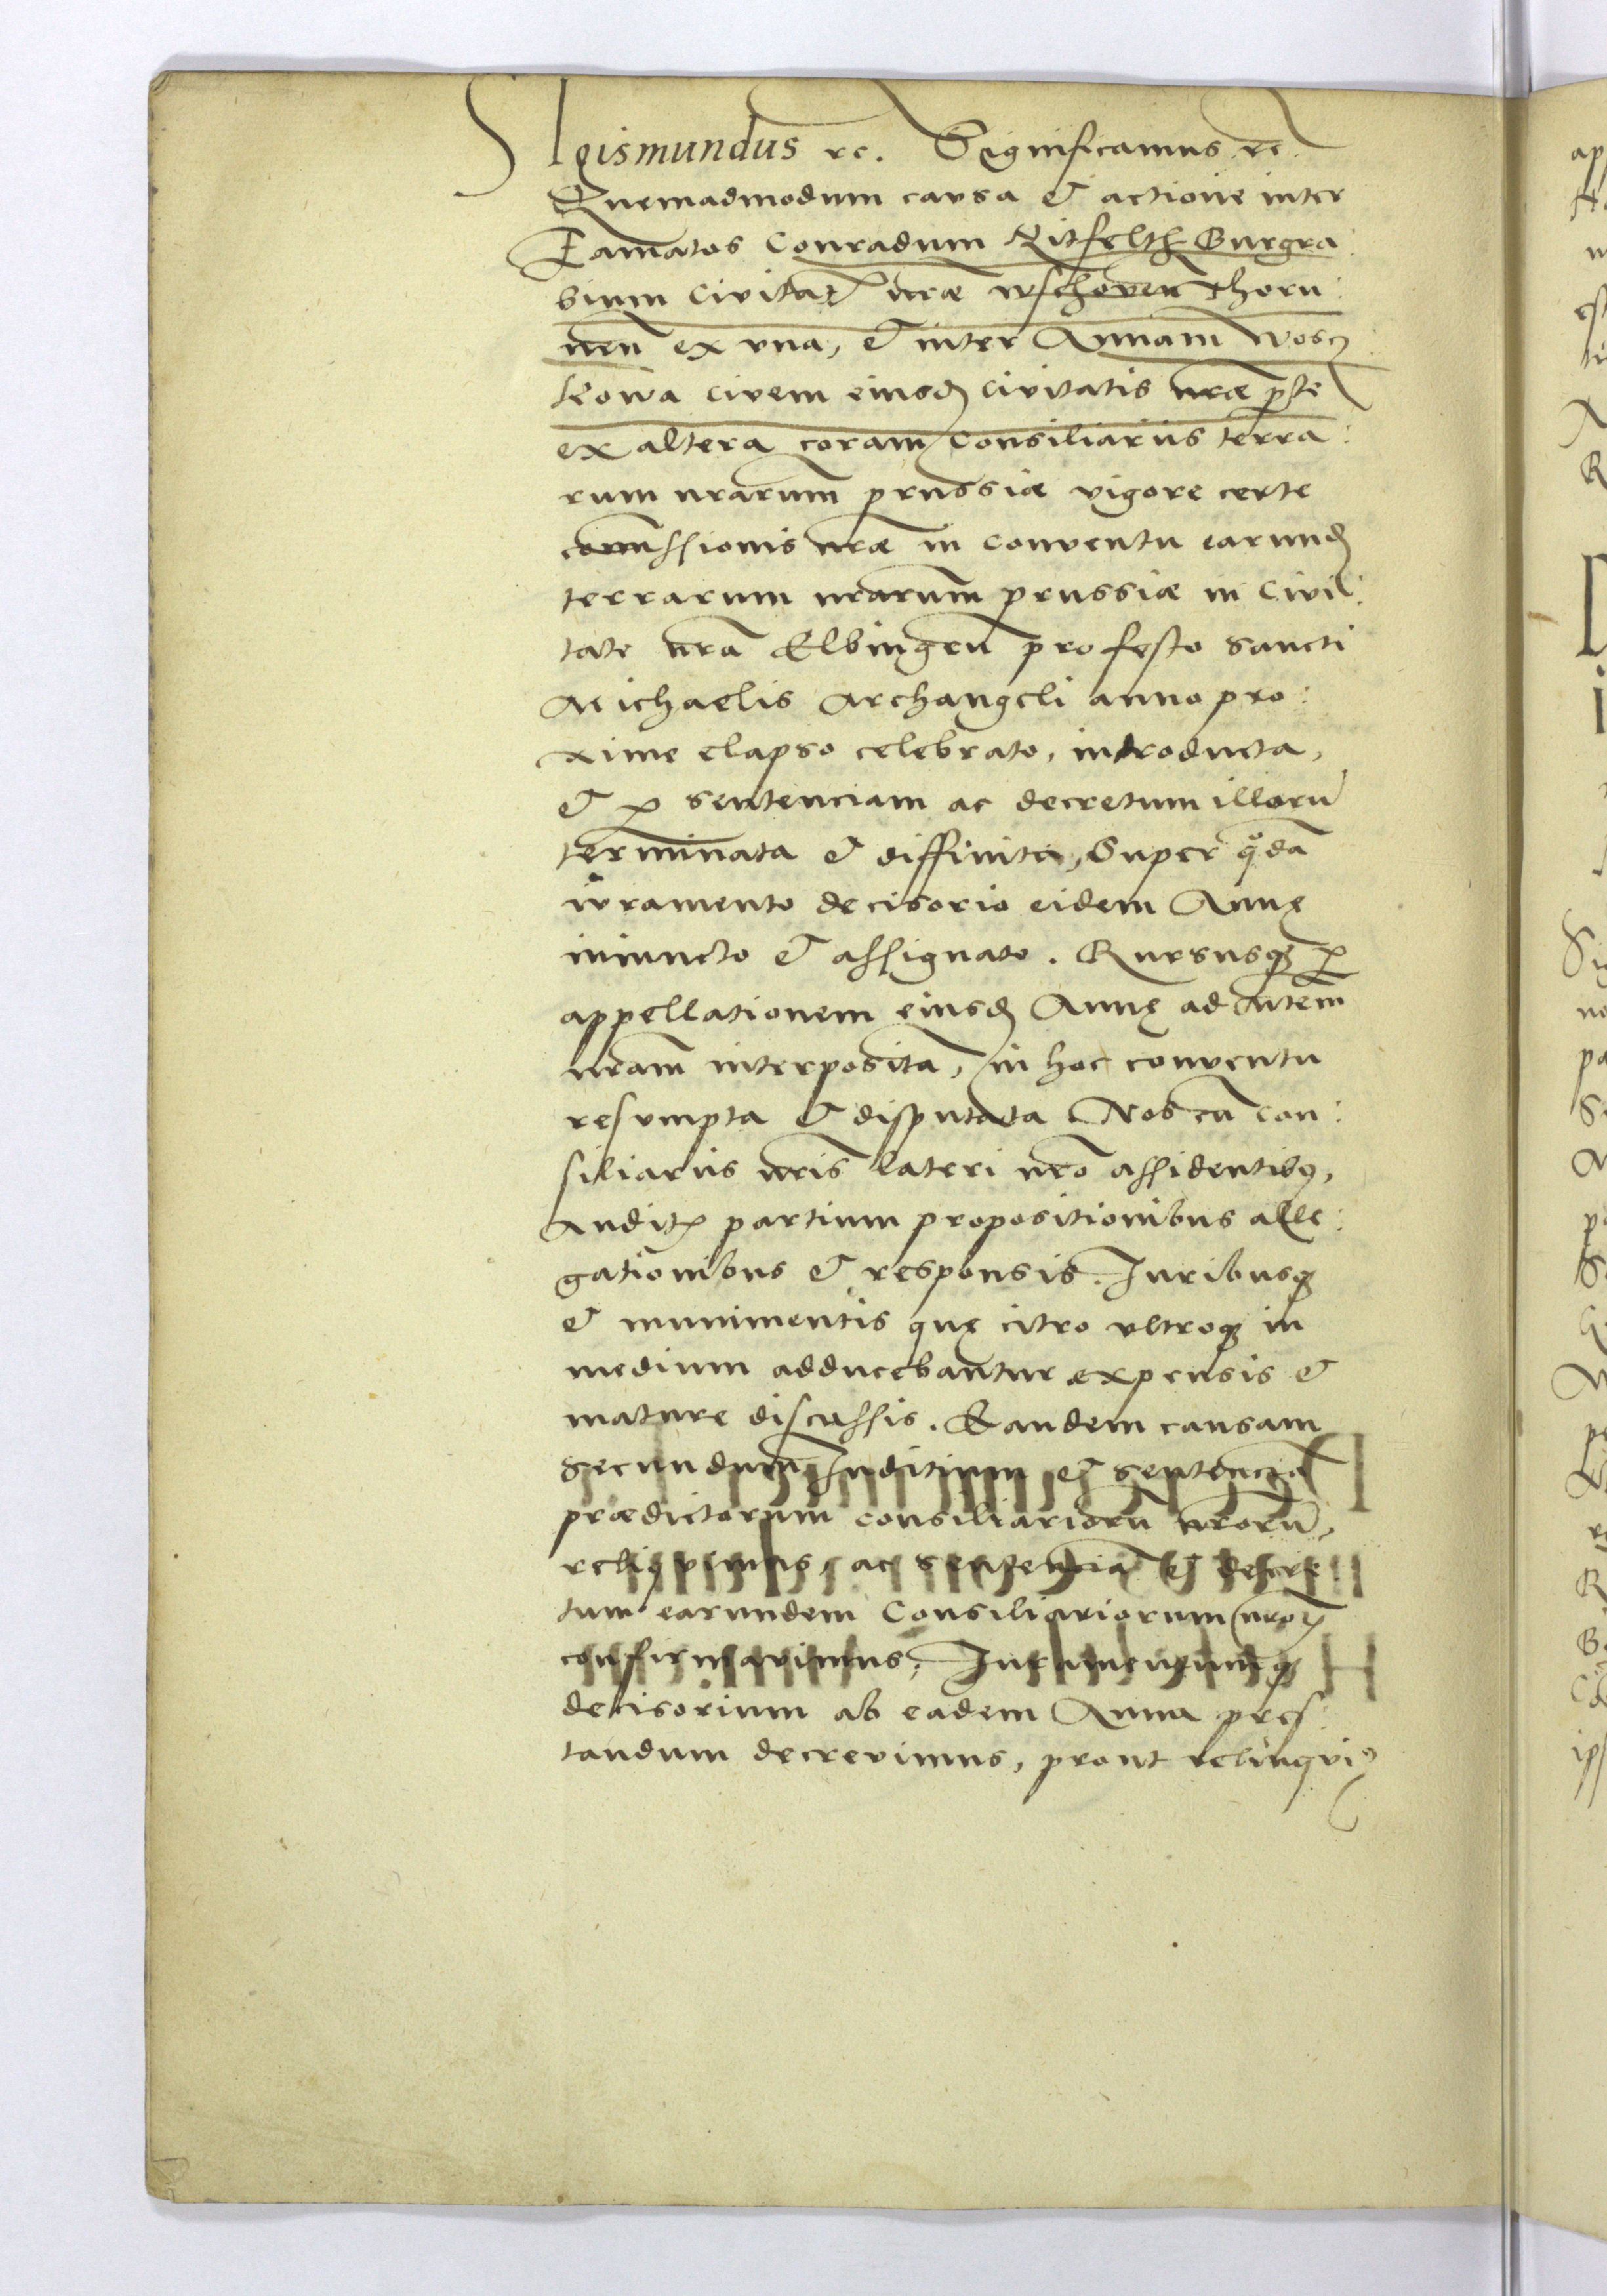 Sigismundus rc. Significamus rc
Quemadmodum causa et actione inter
Famatos Conradum Hitfelth Burgra:
bium Civitat~ nræ wschoven Thoru:
nen̄ ex vna, et inter Annam Wosc
leowa civem eiusd civitatis nræ p̄te
ex altera coram Consiliariis terra:
rum nrarum prussiæ vigore certe
com̄issionis nræ in conventu earund
terrarum nrarum prussiæ in Civi:
tate nrā Elbingen̄ profesto Sancti
Michaelis Archangeli anno pro:
xime elapso celebrato, introducta,
et p sentenciam ac decretum illorū
terminata et diffinita, Super qͦdā
iuramento decisorio eidem Annę
iniuncto et assignato. Rursusq p
appellationem eiusd Annę ad M̄tem
nram interpositā, in hoc conventu
resumpta et disputata Nos cū Con:
siliariis nris lateri nro assidentib9,
Audit~ partium propositionibus alle:
gationibus et responsis. Iuribusq
et munimentis quę citro vltroq in
medium adducebantur expensis et
mature discussis. Eandem causam
secundum Iuditium et sentenciā
prædictorum consiliariorū nrorū,
reliquimus, ac sentenciā et decre
tum earundem Consiliariorum nro℞
confirmavimus, Iuramentumq
decisorium ab eadem Anna pres:
tandum decrevimus, prout relinqui9